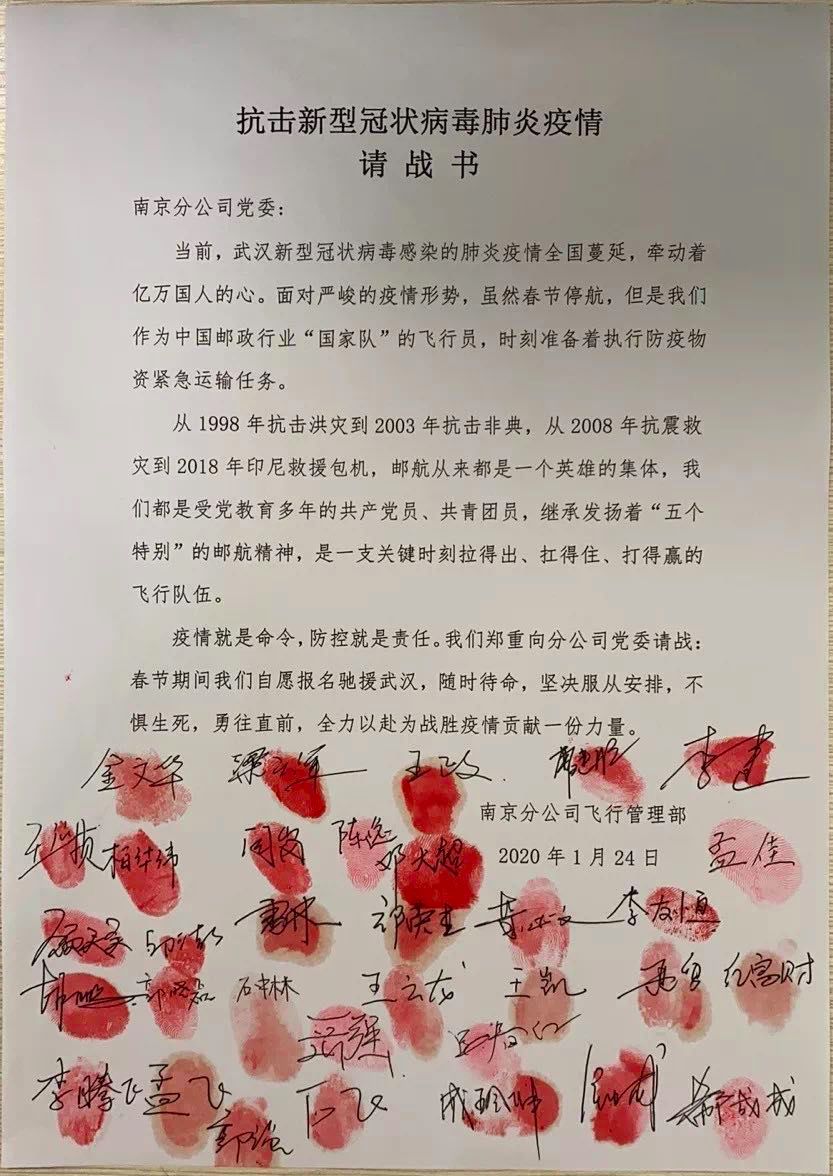 抗击新型冠状病毒肺炎疫情
请 战 书
南京分公司党委：
当前，武汉新型冠状病毒感染的肺炎疫情全国蔓延，牵动着
亿万国人的心。面对严峻的疫情形势，虽然春节停航，但是我们
作为中国邮政行业“国家队”的飞行员，时刻准备着执行防疫物
资紧急运输任务。
从 1998 年抗击洪灾到 2003 年抗击非典，从 2008 年抗震救
灾到 2018 年印尼救援包机，邮航从来都是一个英雄的集体，我
们都是受党教育多年的共产党员、共青团员，继承发扬着“五个
特别”的邮航精神，是一支关键时刻拉得出、扛得住、打得赢的
飞行队伍。
疫情就是命令，防控就是责任。我们郑重向分公司党委请战：
春节期间我们自愿报名驰援武汉，随时待命，坚决服从安排，不
惧生死，勇往直前，全力以赴为战胜疫情贡献一份力量。
金文华 王政 李建
南京分公司飞行管理部
柏华伟 周岗 陈逸 邓大超 2020 年 1 月 24 日 孟佳
李友恒
石中林 王云龙 王凯
李腾飞 孟飞